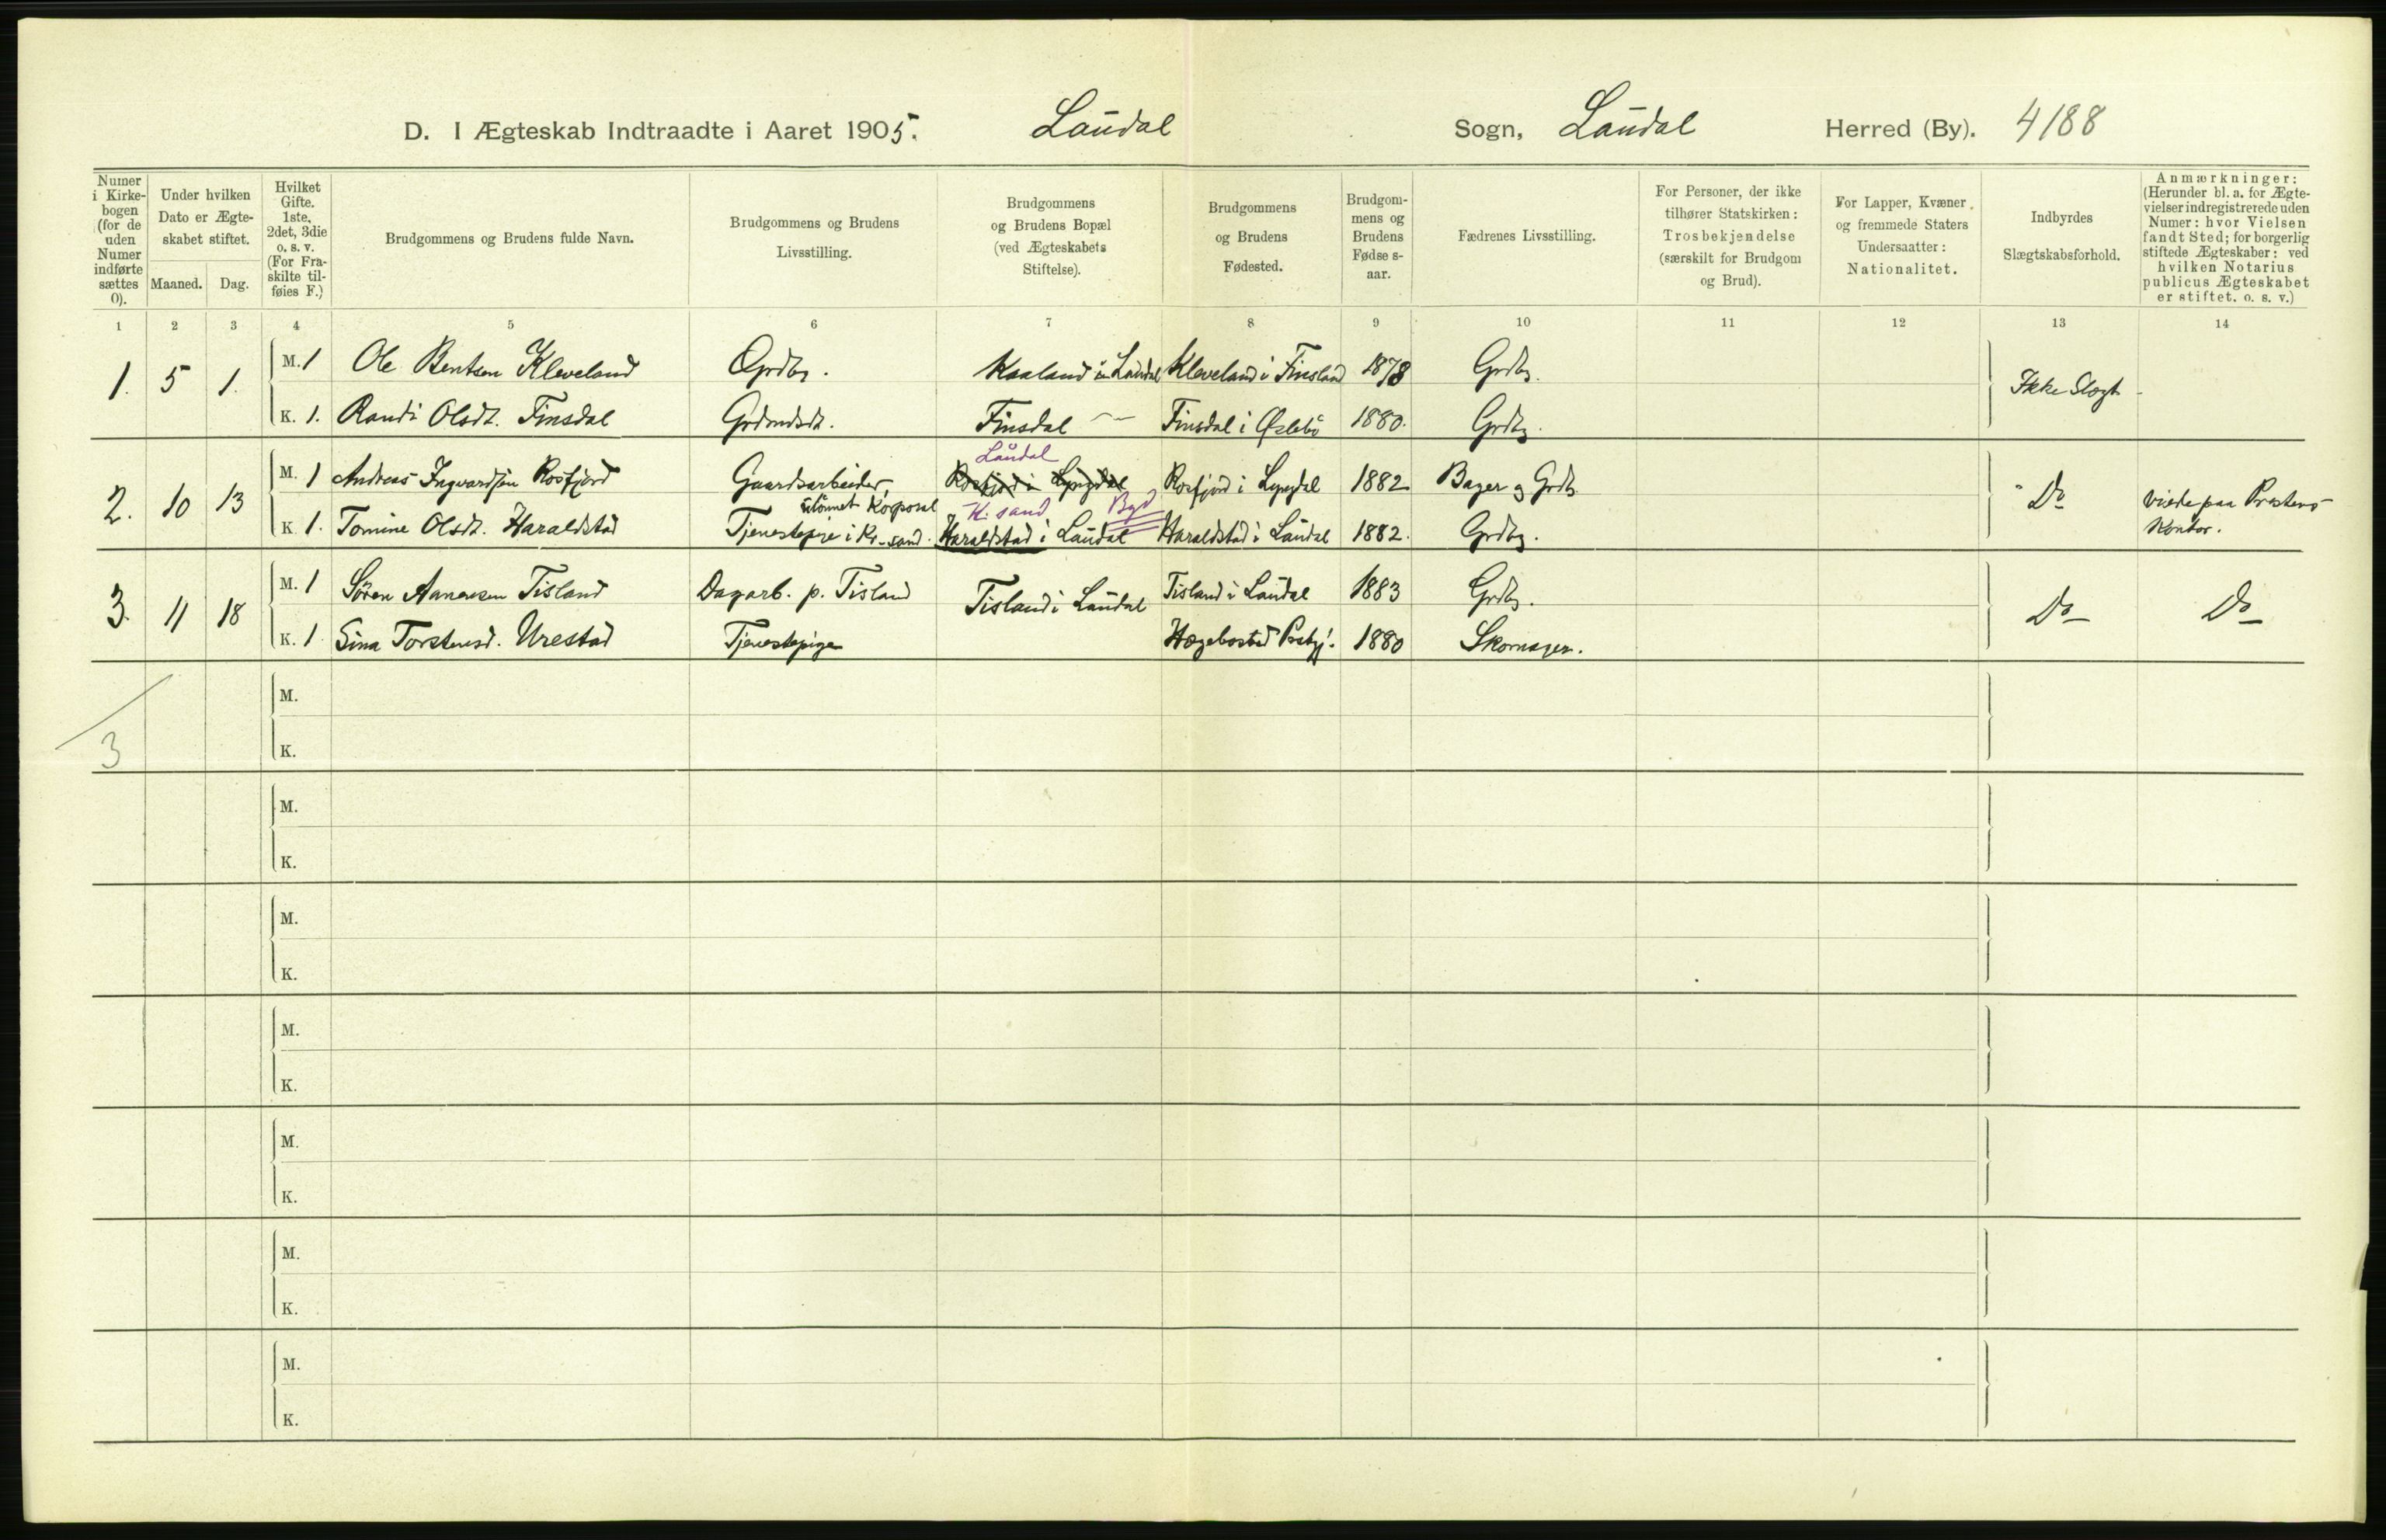 D. I Ægteskab Indtraadte i Aaret 1905. Laudal Sogn, Laudal Herred (By). 4188
Numer i Kirkebogen (for de uden Numer indførte sættes 0).
Under hvilken Dato er Ægteskabet stiftet.
Maaned. Dag.
Hvilket Gifte. 1ste, 2det, 3die o. s. v. (For Fraskilte tilføies F.)
Brudgommens og Brudens fulde Navn.
Brudgommens og Brudens Livsstilling.
Brudgommens og Brudens Bopæl (ved Ægteskabets Stiftelse).
Brudgommens og Brudens Fødested.
Brudgommens og Brudens Fødselsaar.
Fædrenes Livsstilling.
For Personer, der ikke tilhører Statskirken: Trosbekjendelse (særskilt for Brudgom og Brud).
For Lapper, Kvæner og fremmede Staters Undersaatter: Nationalitet.
Indbyrdes Slægtskabsforhold.
Anmærkninger: (Herunder bl. a. for Ægtevielser indregistrerede uden Numer: hvor Vielsen fandt Sted; for borgerlig stiftede Ægteskaber: ved hvilken Notarius publicus Ægteskabet er stiftet. o. s. v.)
1 2 3 4 5 6 7 8 9 10 11 12 13 14
1. 5 1. M. 1 Ole Bentsen Kleveland Grdbr. Kaaland i Laudal Kleveland i Finsland 1878 Grdbr. Ikke Slægt
K. 1. Randi Olsdt. Finsdal Grdmdsdt. Finsdal — Finsdal i Øslebø 1880. Grdbr.
Laudal
2. 10 13 M. 1 Andreas Ingvardsen Rosfjord Gaardsarbeider, Rosfjord i Lyngdal Rosfjord i Lyngdal 1882 Bager og Grdb. Do viede paa Prestens Kontor.
ulønnet Korporal K. sand Byd
K. 1. Tomine Olsdt. Haraldstad Tjenestepige i Kr-sand. Haraldstad i Laudal Haraldstad i Laudal 1882. Grdbr.
3. 11 18 M. 1 Søren Aanensen Tisland Dagarb. p. Tisland Tisland i Laudal Tisland i Laudal 1883 Grdbr. Do Do
K. 1 Sina Torstensd. Urestad Tjenestepige Hægebostad Prstgj. 1880 Skomager.
M.
3
K.
M.
K.
M.
K.
M.
K.
M.
K.
M.
K.
M.
K.